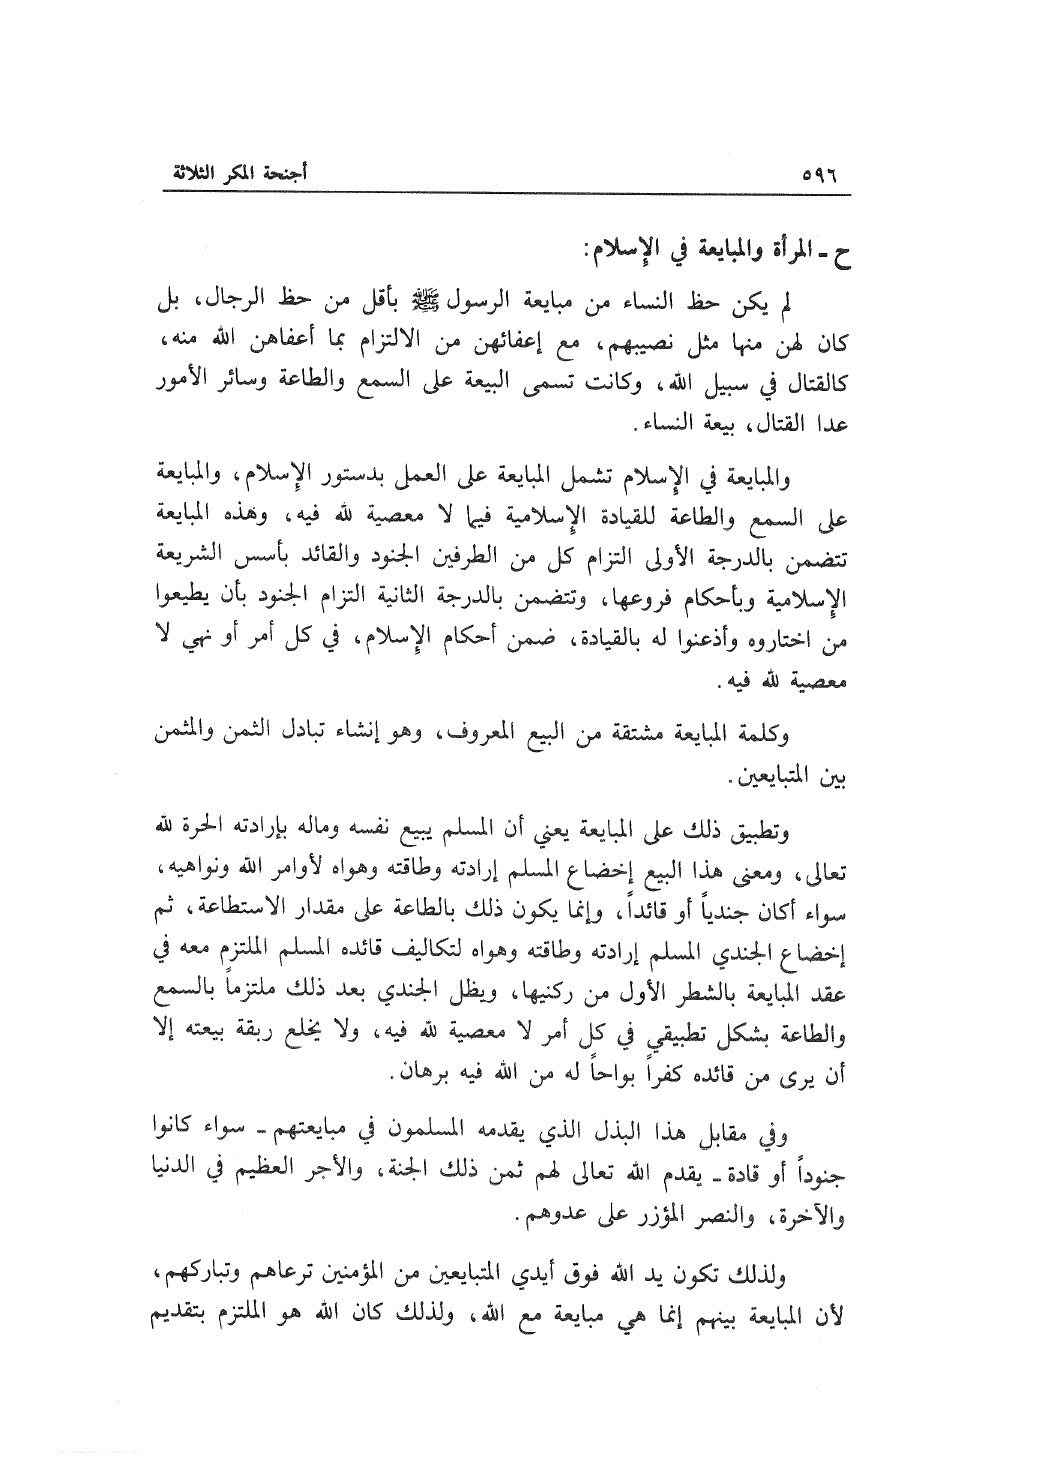 ٥٩٦ أجنحة المكر الثلاثة
ح ـ المرأة والمبايعة في الإسلام:
لم يكن حظ النساء من مبايعة الرسول ﷺ بأقل من حظ الرجال، بل
كان لهن منها مثل نصيبهم، مع إعفائهن من الالتزام بما أعفاهن الله منه،
كالقتال في سبيل الله، وكانت تسمى البيعة على السمع والطاعة وسائر الأمور
عدا القتال، بيعة النساء.
والمبايعة في الإسلام تشمل المبايعة على العمل بدستور الإسلام، والمبايعة
على السمع والطاعة للقيادة الإسلامية فيما لا معصية لله فيه، وهذه المبايعة
تتضمن بالدرجة الأولى التزام كل من الطرفين الجنود والقائد بأسس الشريعة
الإسلامية وبأحكام فروعها، وتتضمن بالدرجة الثانية التزام الجنود بأن يطيعوا
من اختاروه وأذعنوا له بالقيادة، ضمن أحكام الإسلام، في كل أمر أو نهي لا
معصية لله فيه.
وكلمة المبايعة مشتقة من البيع المعروف، وهو إنشاء تبادل الثمن والمثمن
بين المتبايعين.
وتطبيق ذلك على المبايعة يعني أن المسلم يبيع نفسه وماله بإرادته الحرة لله
تعالى، ومعنى هذا البيع إخضاع المسلم إرادته وطاقته وهواه لأوامر الله ونواهيه،
سواء أكان جندياً أو قائداً، وإنما يكون ذلك بالطاعة على مقدار الاستطاعة، ثم
إخضاع الجندي المسلم إرادته وطاقته وهواه لتكاليف قائده المسلم الملتزم معه في
عقد المبايعة بالشطر الأول من ركنيها، ويظل الجندي بعد ذلك ملتزماً بالسمع
والطاعة بشكل تطبيقي في كل أمر لا معصية لله فيه، ولا يخلع ربقة بيعته إلا
أن يرى من قائده كفراً بواحاً له من الله فيه برهان.
وفي مقابل هذا البذل الذي يقدمه المسلمون في مبايعتهم ـ سواء كانوا
جنوداً أو قادة ـ يقدم الله تعالى لهم ثمن ذلك الجنة، والأجر العظيم في الدنيا
والآخرة، والنصر المؤزر على عدوهم.
ولذلك تكون يد الله فوق أيدي المتبايعين من المؤمنين ترعاهم وتباركهم،
لأن المبايعة بينهم إنما هي مبايعة مع الله، ولذلك كان الله هو الملتزم بتقديم